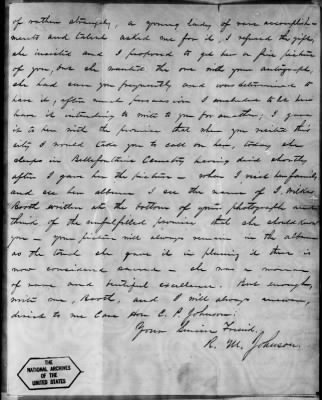 of rather strangely, a young lady, of rare accomplish-
ments and talent asked me for it I refused the gift,
she insisted and I proposed to get her a fine picture
of you, but she wanted the one with your autograph,
she had seen you frequently and was determined to
have it; after much persuasion I concluded to let her
have it intending to write to you for another; I gave
it to her with the promise that when you visited this
city I would take you to call on her, today she
sleeps in Bellefontaine Cemetery having died shortly
after I gave her the picture – when I visit her family
and see her album I see the name of J. Wilkes
Booth written at the bottom of your photograph and
think of the unfulfilled promise that she should know
you – your picture will always remain in the album
as the touch she gave it in placing it there is
now considered sacred – she was a woman
of rare and beautiful excellence. But enough,
write me, Booth, and I will always answer,
direct to me Care Hon C. P. Johnson.
Your Sincere Friend,
R. M. Johnson.
THE
NATIONAL ARCHIVES
OF THE
UNITED STATES